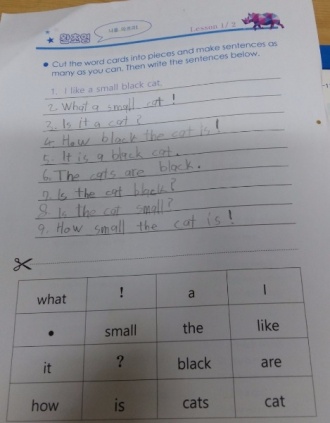 Lesson 1 / 2
Cut the word cards into pieces and make sentences as
many as you can. Then write the sentences below.
1. I like a small black cat.
2. What a small cat !
3. Is it a cat ?
4. How black the cat is !
5. It is a black cat.
6. The cats are black.
7. Is the cat black?
8. Is the cat small?
9. How small the cat is !
what ! a I
• small the like
it ? black are
how is cats cat